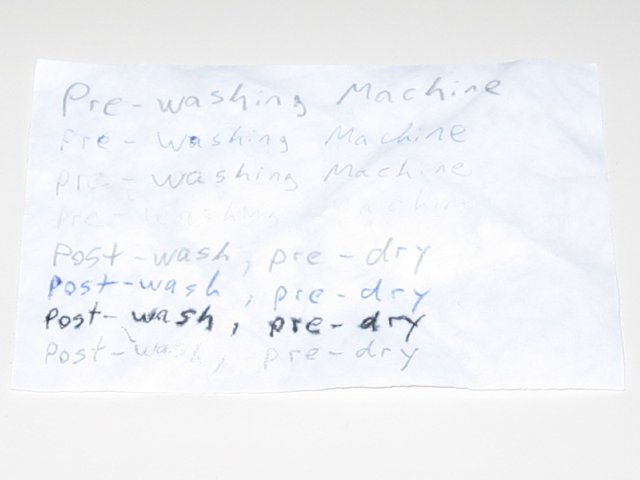 Pre-washing Machine
Pre-washing Machine
Pre-washing Machine
Pre-washing Machine
Post-wash, pre-dry
Post-wash, pre-dry
Post-wash, pre-dry
Post-wash, pre-dry